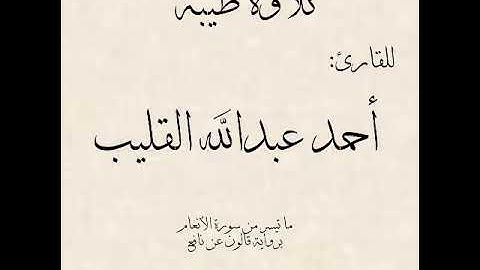 تلاوة طيبة
للقارئ:
أحمد عبدالله القليب
ما تيسر من سورة الأنعام
برواية قالون عن نافع